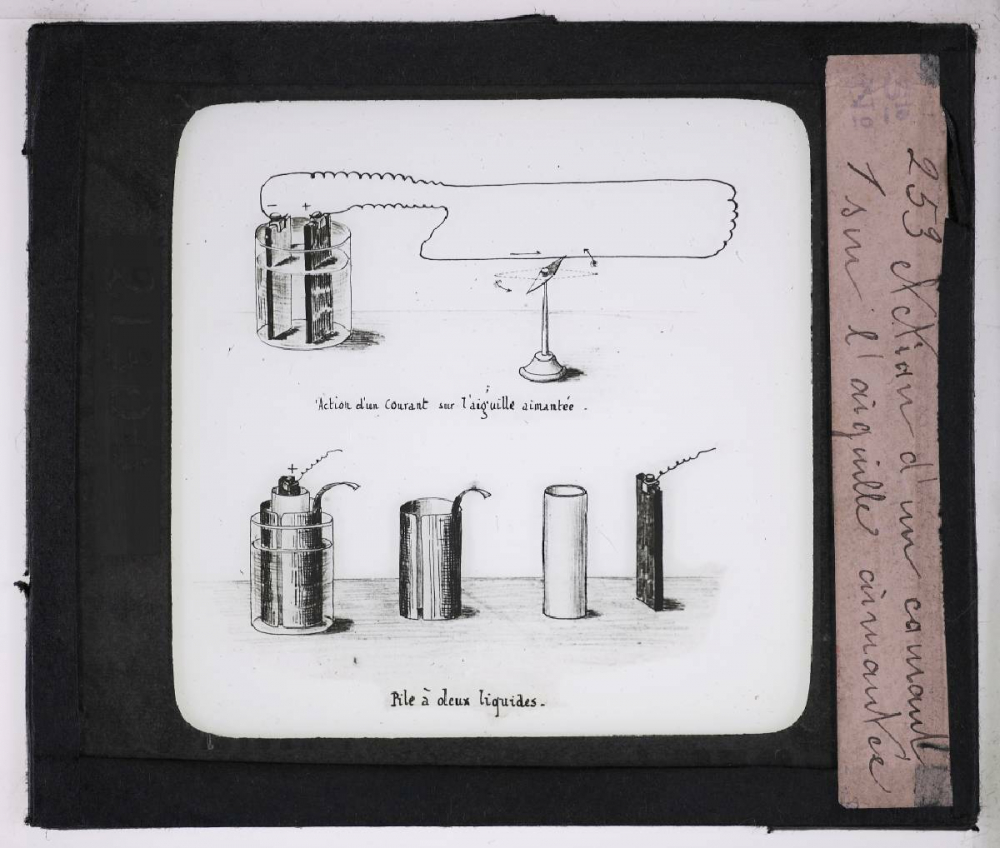 - +
Action d'un Courant sur l'aiguille aimantée .
+
Pile à deux liquides.
253 Action d'un courant
1 sur l'aiguille aimantée